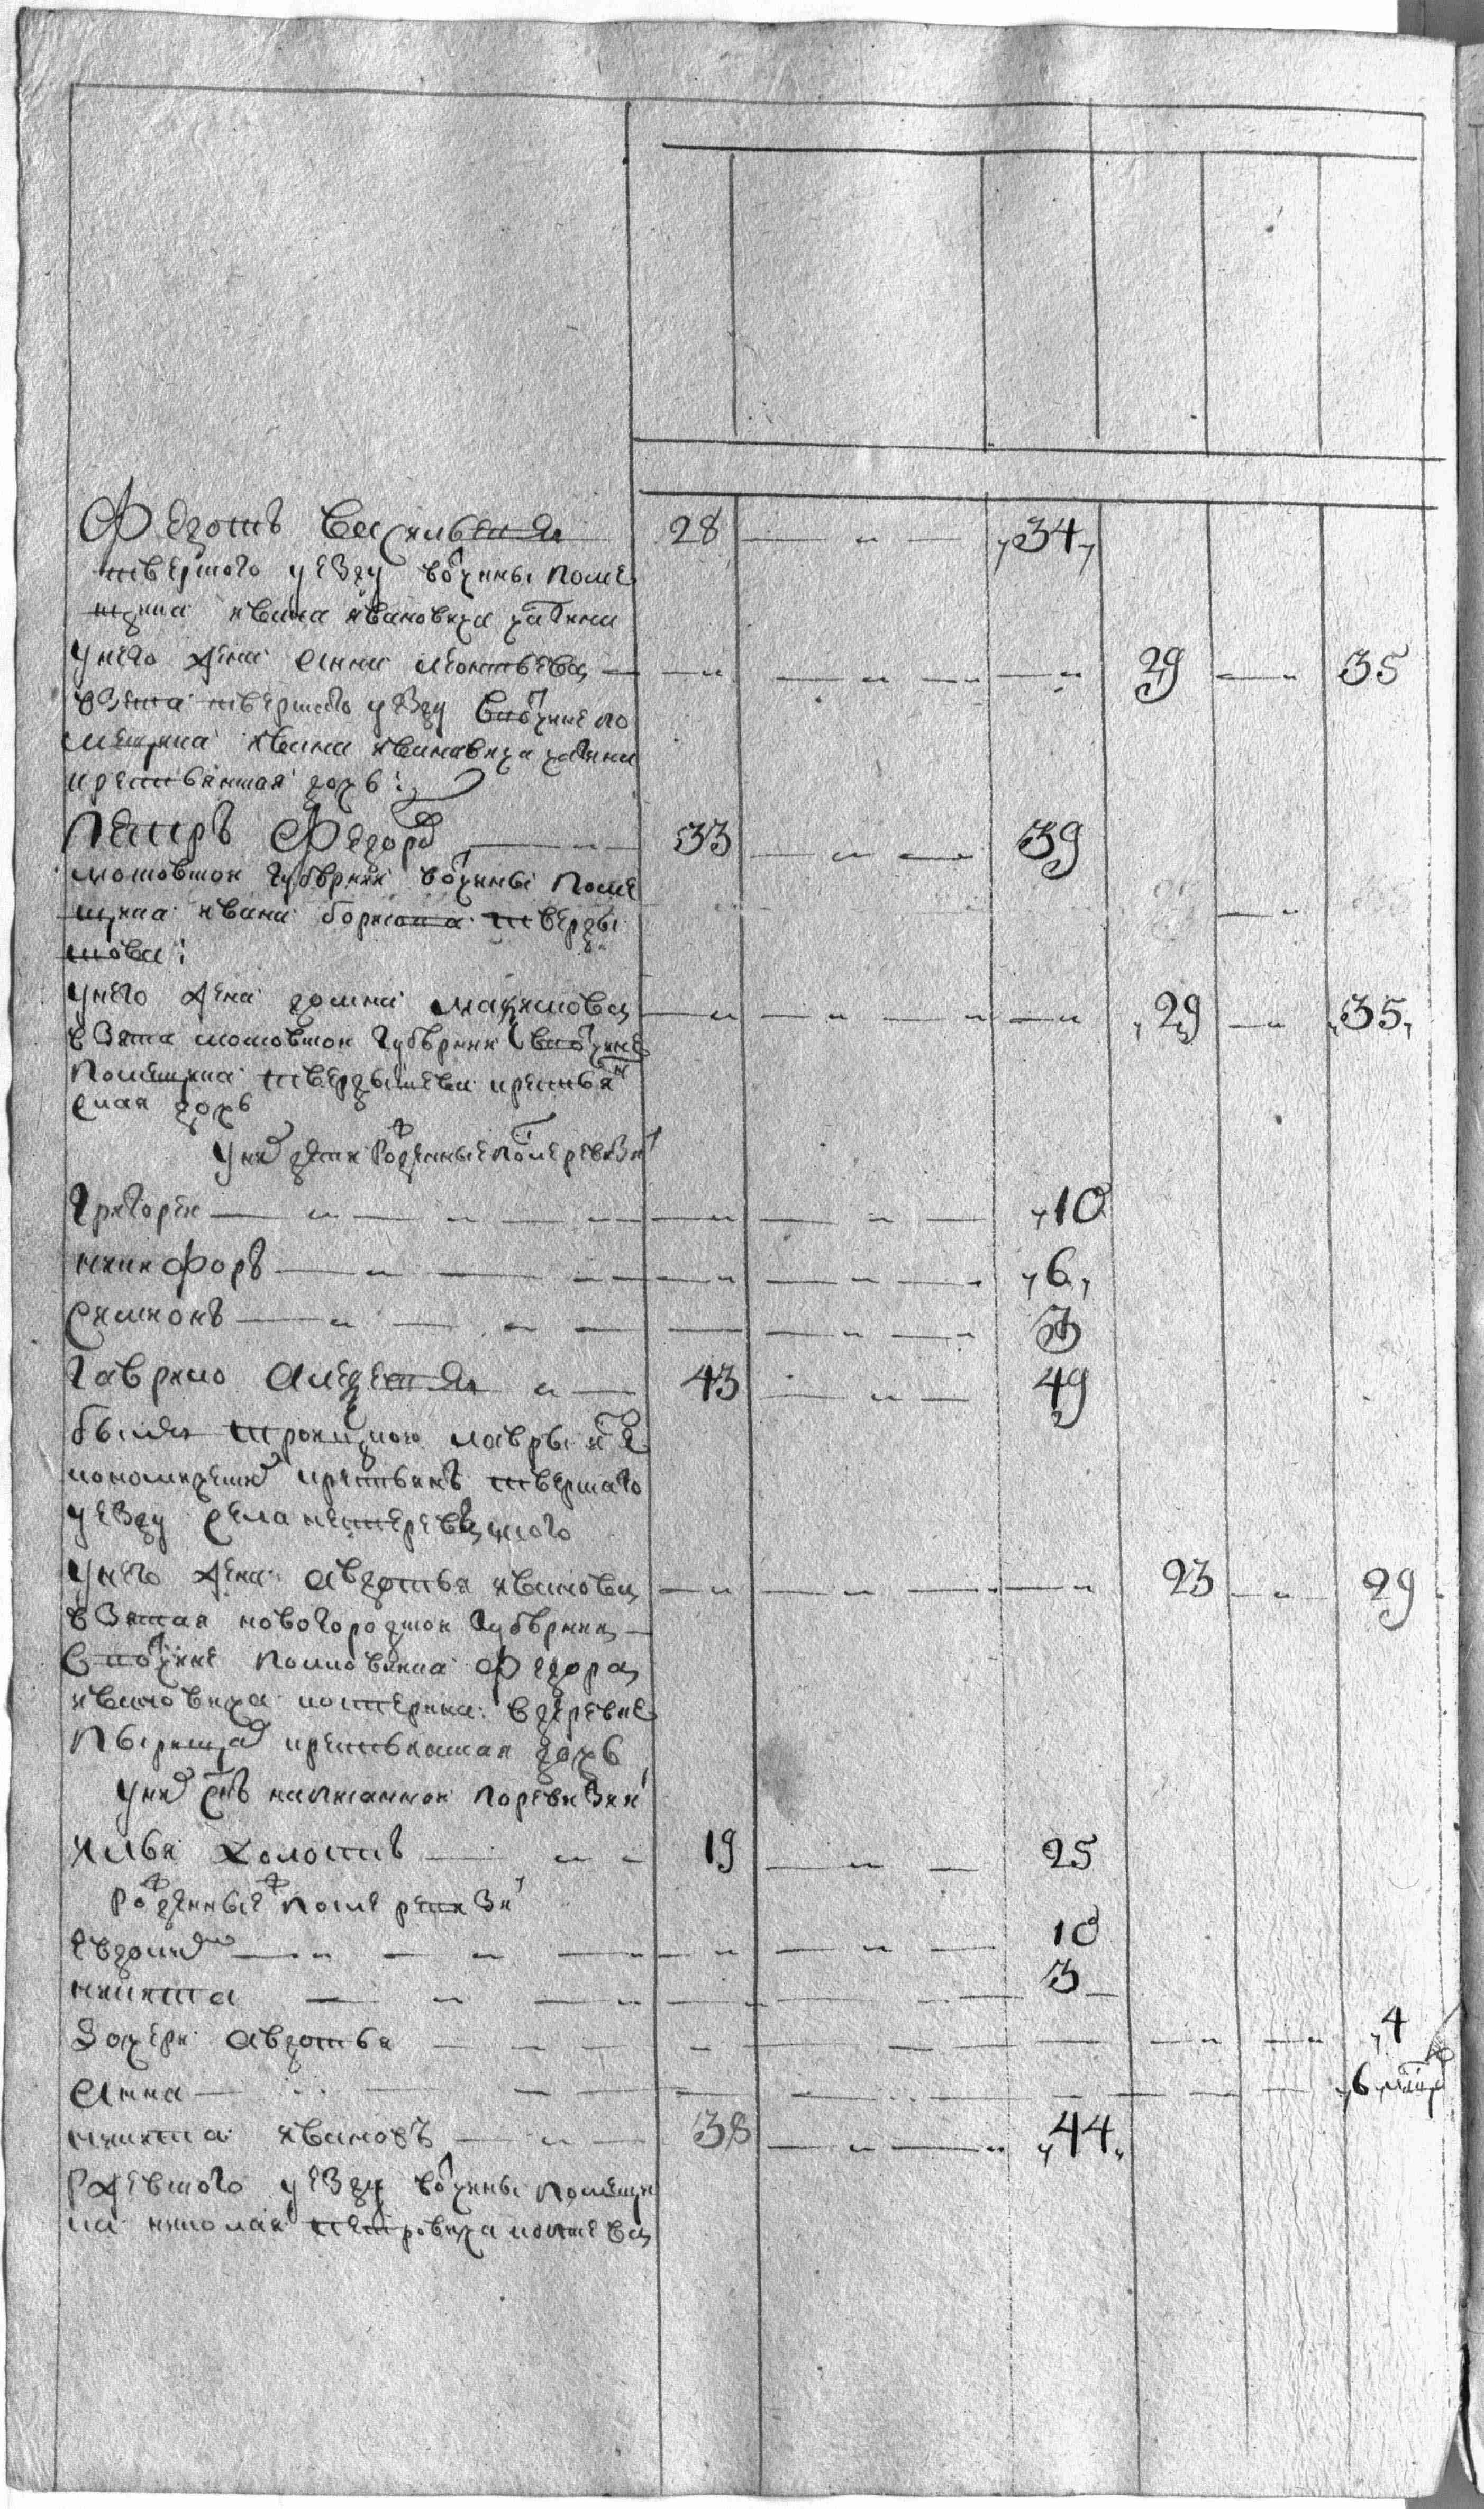 Федотъ Васильевъ 28 34
тверского уезду вотчины поме
щика ивана ивановича
у него жена анна леонтьева 29 35
взята тверского уезду вотчине по
мещика ивана ивановича
крестьянская дочь:
Петръ Федоров 33 39
московской губернии вотчины поме
щика ивана борисова тверды
шова:
у него жена домна максимова 29 35
взята московской губернии вотчине
помещика твердышева крестьян
ская дочь
у них дети рожденные после ревизии
Григореи 10
никифоръ 6
симионъ 3
Гаврило 43 49
бывшей троицкой лавры
крестьянъ тверскаго
уезду села
у него жена авдотья иванова 23 29
взятая новогородской губернии
вотчине полковника федора
ивановича в деревне
крестьянская дочь
у них сынъ написанной по ревизии
илья холостъ 19 25
рожденные после ревизии
евдоким 10
никита 3
дочери авдотья 4
Анна 6
никита ивановъ 38 44
ржевского уезду вотчины помещи
ка николая петровича